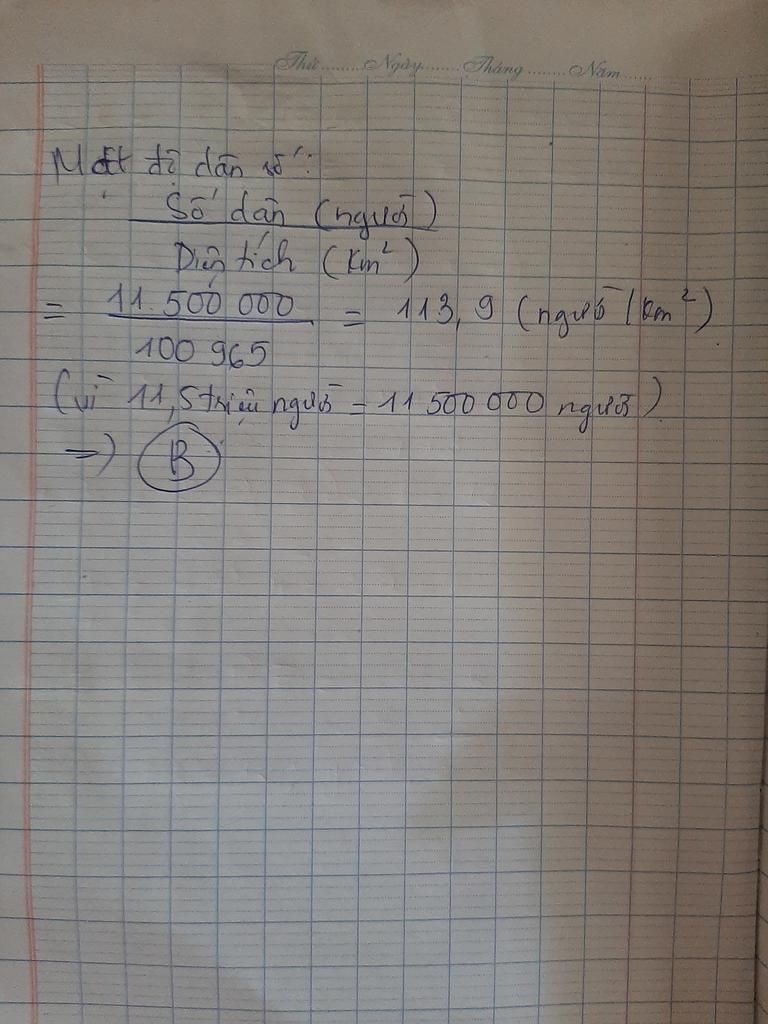 Thứ........Ngày........Tháng........Năm......
Mật độ dân số:
Số dân (người)
Diện tích (Km²)
= 11 500 000 / 100 965 = 113,9 (người/km²)
(vì 11,5 triệu người = 11 500 000 người)
=> B